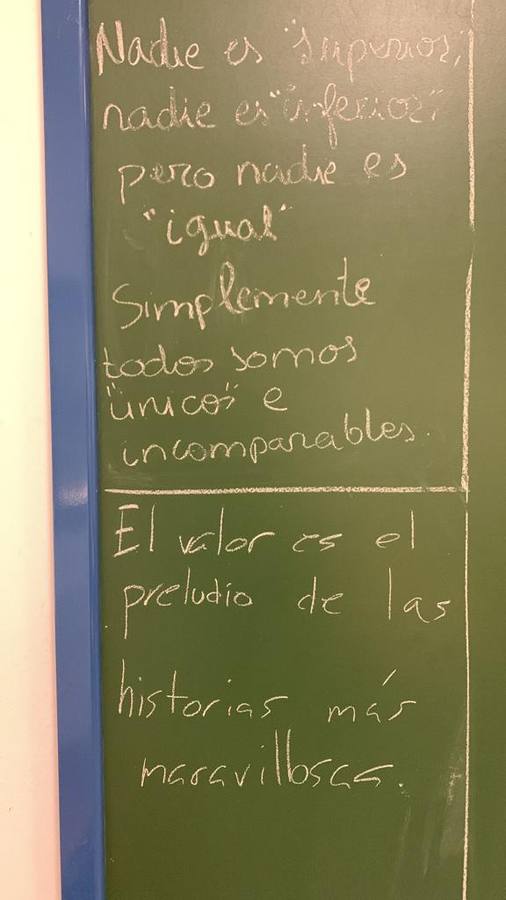 Nadie es "superior",
nadie es "inferior",
pero nadie es
"igual"
Simplemente
todos somos
"únicos" e
incomparables.
El valor es el
preludio de las
historias más
maravillosas.